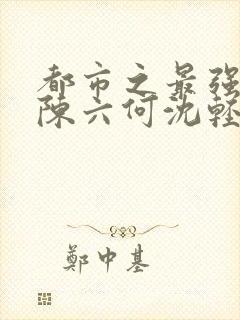 都市之最强
陳六何沈輕
鄭中基